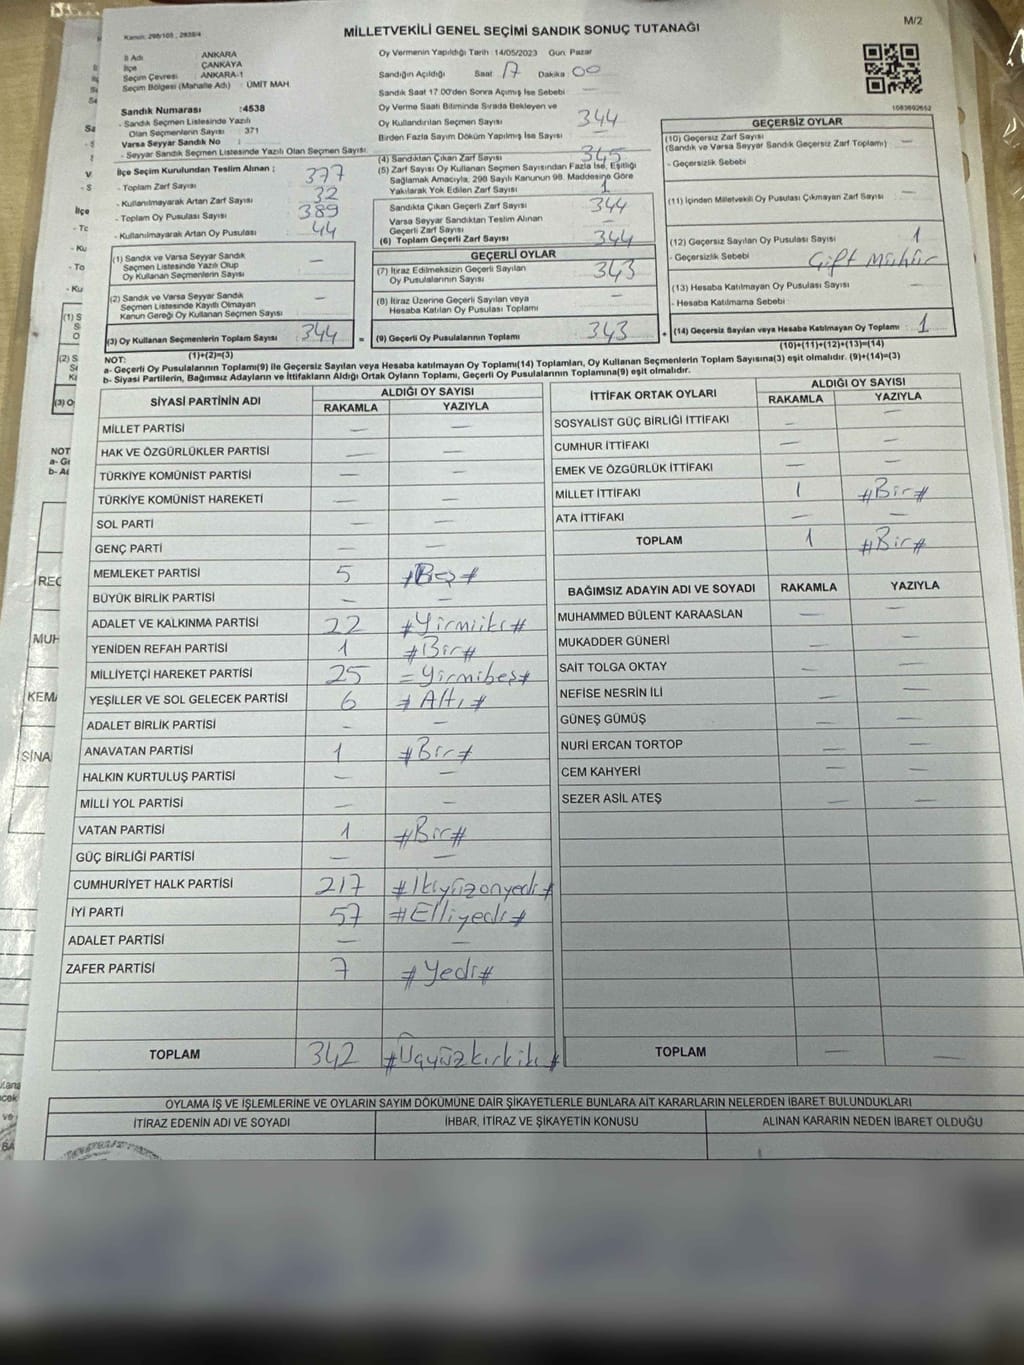 Kanun: 298/105 , 2839/4
MİLLETVEKİLİ GENEL SEÇİMİ SANDIK SONUÇ TUTANAĞI
M/2
İl Adı : ANKARA
İlçe : ÇANKAYA
Seçim Çevresi : ANKARA-1
Seçim Bölgesi (Mahalle Adı) : ÜMİT MAH
Sandık Numarası :4538
- Sandık Seçmen Listesinde Yazılı
Olan Seçmenlerin Sayısı : 371
Varsa Seyyar Sandık No :
- Seyyar Sandık Seçmen Listesinde Yazılı Olan Seçmen Sayısı:
İlçe Seçim Kurulundan Teslim Alınan ;
- Toplam Zarf Sayısı 377
- Kullanılmayarak Artan Zarf Sayısı 32
- Toplam Oy Pusulası Sayısı 389
- Kullanılmayarak Artan Oy Pusulası 44
(1) Sandık ve Varsa Seyyar Sandık
Seçmen Listesinde Yazılı Olup
Oy Kullanan Seçmenlerin Sayısı —
(2) Sandık ve Varsa Seyyar Sandık
Seçmen Listesinde Kayıtlı Olmayan
Kanun Gereği Oy Kullanan Seçmen Sayısı —
(3) Oy Kullanan Seçmenlerin Toplam Sayısı 344
(1)+(2)=(3)
Oy Vermenin Yapıldığı Tarih :14/05/2023 Gün: Pazar
Sandığın Açıldığı Saat 17 Dakika 00
Sandık Saat 17.00'den Sonra Açılmış İse Sebebi —
Oy Verme Saati Bitiminde Sırada Bekleyen ve
Oy Kullandırılan Seçmen Sayısı 344
Birden Fazla Sayım Döküm Yapılmış İse Sayısı —
(4) Sandıktan Çıkan Zarf Sayısı 345
(5) Zarf Sayısı Oy Kullanan Seçmen Sayısından Fazla İse, Eşitliği
Sağlamak Amacıyla, 298 Sayılı Kanunun 98. Maddesine Göre
Yakılarak Yok Edilen Zarf Sayısı 1
Sandıkta Çıkan Geçerli Zarf Sayısı 344
Varsa Seyyar Sandıktan Teslim Alınan
Geçerli Zarf Sayısı —
(6) Toplam Geçerli Zarf Sayısı 344
GEÇERLİ OYLAR
(7) İtiraz Edilmeksizin Geçerli Sayılan
Oy Pusulalarının Sayısı 343
(8) İtiraz Üzerine Geçerli Sayılan veya
Hesaba Katılan Oy Pusulası Toplamı —
= (9) Geçerli Oy Pusulalarının Toplamı 343 +
1083692652
GEÇERSİZ OYLAR
(10) Geçersiz Zarf Sayısı
(Sandık ve Varsa Seyyar Sandık Geçersiz Zarf Toplamı) —
- Geçersizlik Sebebi
(11) İçinden Milletvekili Oy Pusulası Çıkmayan Zarf Sayısı —
(12) Geçersiz Sayılan Oy Pusulası Sayısı 1
- Geçersizlik Sebebi Çift Mühür
(13) Hesaba Katılmayan Oy Pusulası Sayısı —
- Hesaba Katılmama Sebebi
(14) Geçersiz Sayılan veya Hesaba Katılmayan Oy Toplamı : 1
(10)+(11)+(12)+(13)=(14)
NOT:
a- Geçerli Oy Pusulalarının Toplamı(9) ile Geçersiz Sayılan veya Hesaba katılmayan Oy Toplamı(14) Toplamları, Oy Kullanan Seçmenlerin Toplam Sayısına(3) eşit olmalıdır. (9)+(14)=(3)
b- Siyasi Partilerin, Bağımsız Adayların ve İttifakların Aldığı Ortak Oyların Toplamı, Geçerli Oy Pusulalarının Toplamına(9) eşit olmalıdır.
SİYASİ PARTİNİN ADI
ALDIĞI OY SAYISI
RAKAMLA YAZIYLA
MİLLET PARTİSİ — —
HAK VE ÖZGÜRLÜKLER PARTİSİ — —
TÜRKİYE KOMÜNİST PARTİSİ — —
TÜRKİYE KOMÜNİST HAREKETİ — —
SOL PARTİ — —
GENÇ PARTİ — —
MEMLEKET PARTİSİ 5 #Beş#
BÜYÜK BİRLİK PARTİSİ — —
ADALET VE KALKINMA PARTİSİ 22 #Yirmiiki#
YENİDEN REFAH PARTİSİ 1 #Bir#
MİLLİYETÇİ HAREKET PARTİSİ 25 =Yirmibeş#
YEŞİLLER VE SOL GELECEK PARTİSİ 6 #Altı#
ADALET BİRLİK PARTİSİ — —
ANAVATAN PARTİSİ 1 #Bir#
HALKIN KURTULUŞ PARTİSİ — —
MİLLİ YOL PARTİSİ — —
VATAN PARTİSİ 1 #Bir#
GÜÇ BİRLİĞİ PARTİSİ — —
CUMHURİYET HALK PARTİSİ 217 #İkiyüzonyedi#
İYİ PARTİ 57 #Elliyedi#
ADALET PARTİSİ — —
ZAFER PARTİSİ 7 #Yedi#
TOPLAM 342 #Üçyüzkırkiki#
İTTİFAK ORTAK OYLARI
ALDIĞI OY SAYISI
RAKAMLA YAZIYLA
SOSYALİST GÜÇ BİRLİĞİ İTTİFAKI — —
CUMHUR İTTİFAKI — —
EMEK VE ÖZGÜRLÜK İTTİFAKI — —
MİLLET İTTİFAKI 1 #Bir#
ATA İTTİFAKI — —
TOPLAM 1 #Bir#
BAĞIMSIZ ADAYIN ADI VE SOYADI RAKAMLA YAZIYLA
MUHAMMED BÜLENT KARAASLAN — —
MUKADDER GÜNERİ — —
SAİT TOLGA OKTAY — —
NEFİSE NESRİN İLİ — —
GÜNEŞ GÜMÜŞ — —
NURİ ERCAN TORTOP — —
CEM KAHYERİ — —
SEZER ASİL ATEŞ — —
TOPLAM — —
OYLAMA İŞ VE İŞLEMLERİNE VE OYLARIN SAYIM DÖKÜMÜNE DAİR ŞİKAYETLERLE BUNLARA AİT KARARLARIN NELERDEN İBARET BULUNDUKLARI
İTİRAZ EDENİN ADI VE SOYADI İHBAR, İTİRAZ VE ŞİKAYETİN KONUSU ALINAN KARARIN NEDEN İBARET OLDUĞU